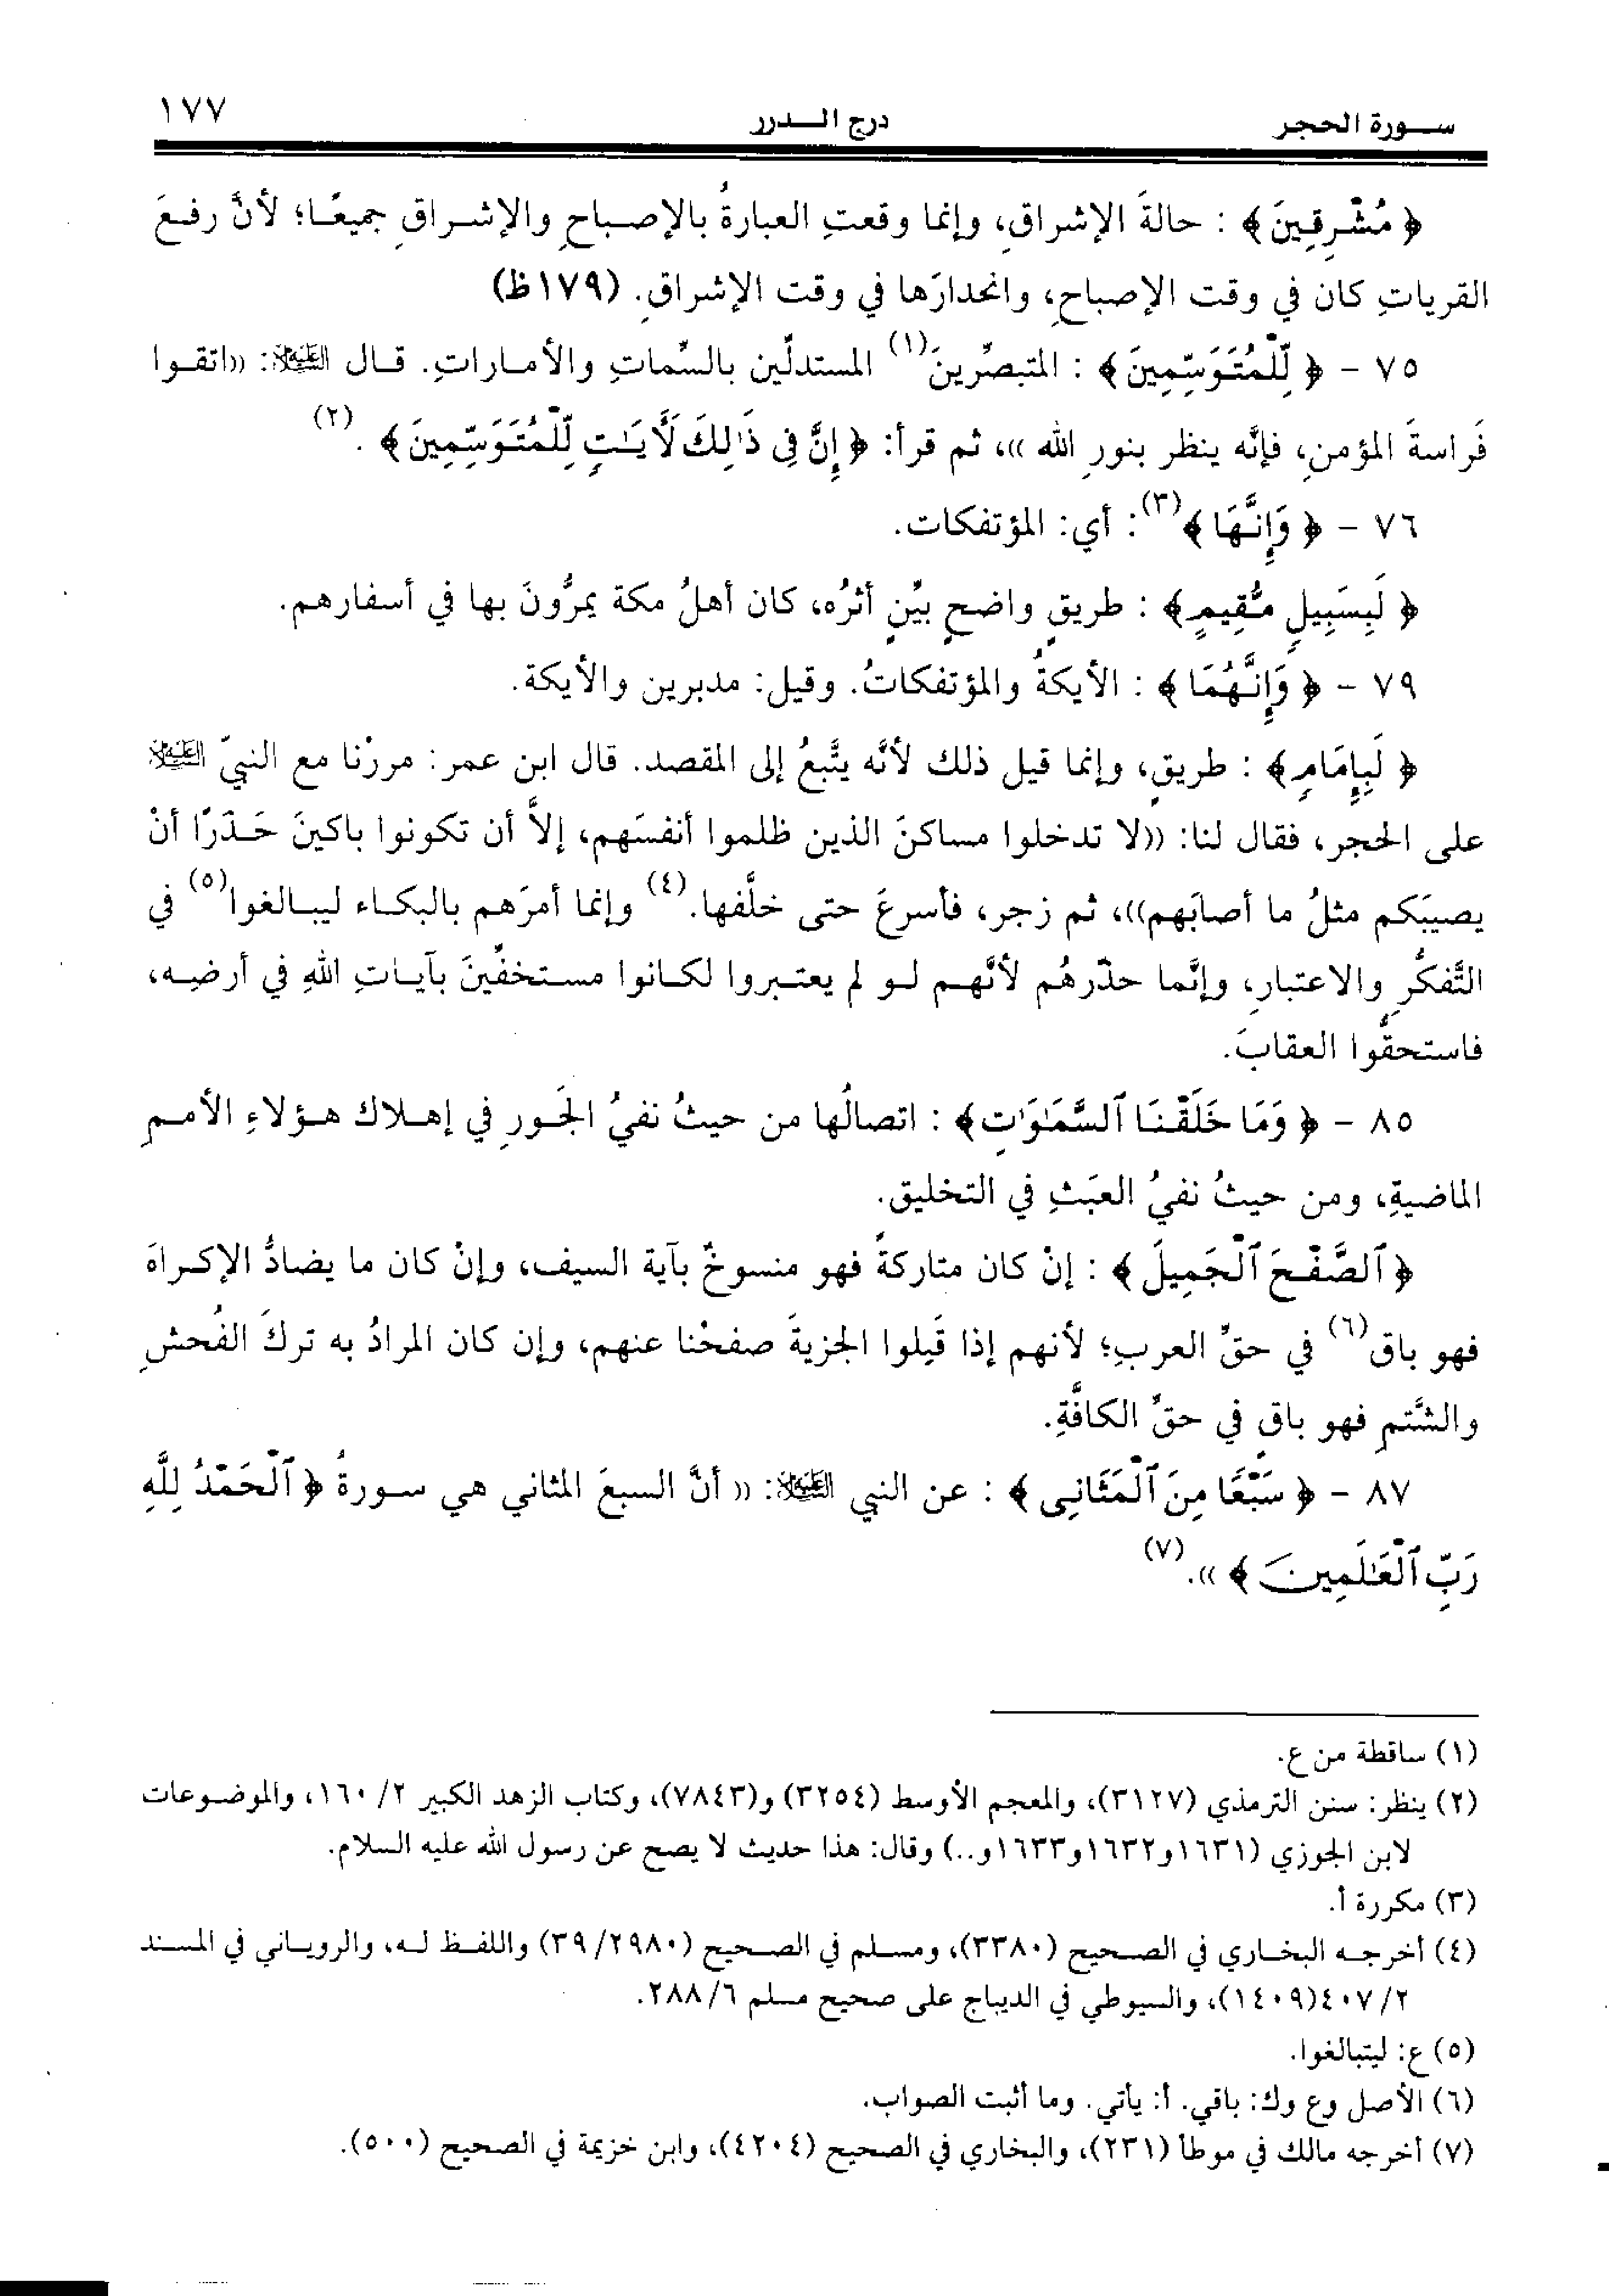 سـورة الحجر درج الـدرر ١٧٧
﴿ مُشْرِقِينَ ﴾ : حالةَ الإشراقِ، وإنما وقعتِ العبارةُ بالإصباحِ والإشراقِ جميعًا؛ لأنَّ رفعَ
القرياتِ كان في وقت الإصباحِ، وانحدارَها في وقت الإشراقِ. (١٧٩ظ)
٧٥ - ﴿ لِّلْمُتَوَسِّمِينَ ﴾ : المتبصِّرينَ(١) المستدلّين بالسِّماتِ والأماراتِ. قال العلييلا: ((اتقوا
فَراسةَ المؤمنِ، فإنَّه ينظر بنورِ الله ))، ثم قرأ: ﴿ إِنَّ فِى ذَٰلِكَ لَأَيَـٰتٍ لِّلْمُتَوَسِّمِينَ ﴾ .(٢)
٧٦ - ﴿ وَإِنَّهَا ﴾(٣): أي: المؤتفكات.
﴿ لَبِسَبِيلٍ مُّقِيمٍ﴾ : طريقٍ واضحٍ بيِّنٍ أثرُه، كان أهلُ مكة يمرُّونَ بها في أسفارهم.
٧٩ - ﴿ وَإِنَّهُمَا ﴾ : الأيكةُ والمؤتفكاتُ. وقيل: مدبرين والأيكة.
﴿ لَبِإِمَامٍ﴾ : طريقٍ، وإنما قيل ذلك لأنَّه يتَّبعُ إلى المقصد. قال ابن عمر: مررْنا مع النبيّ
على الحجر، فقال لنا: ((لا تدخلوا مساكنَ الذين ظلموا أنفسَهم، إلاَّ أن تكونوا باكينَ حَذَرًا أنْ
يصيبَكم مثلُ ما أصابَهم))، ثم زجر، فأسرعَ حتى خلَّفها.(٤) وإنما أمرَهم بالبكاء ليبالغوا(٥) في
التَّفكُّرِ والاعتبارِ، وإنَّما حذّرهُم لأنَّهم لو لم يعتبروا لكانوا مستخفِّينَ بآياتِ اللهِ في أرضِه،
فاستحقُّوا العقابَ.
٨٥ - ﴿ وَمَا خَلَقْنَا ٱلسَّمَـٰوَٰتِ﴾ : اتصالُها من حيثُ نفيُ الجَورِ في إهلاك هؤلاءِ الأممِ
الماضيةِ، ومن حيثُ نفيُ العبَثِ في التخليق.
﴿ ٱلصَّفْحَ ٱلْجَمِيلَ ﴾ : إنْ كان متاركةً فهو منسوخٌ بآية السيف، وإنْ كان ما يضادُّ الإكراهَ
فهو باق(٦) في حقِّ العربِ؛ لأنهم إذا قَبِلوا الجزيةَ صفحْنا عنهم، وإن كان المرادُ به تركَ الفُحشِ
والشَّتمِ فهو باقٍ في حقِّ الكافَّةِ.
٨٧ - ﴿ سَبْعًا مِنَ ٱلْمَثَانِى ﴾ : عن النبي : (( أنَّ السبعَ المثاني هي سورةُ ﴿ ٱلْحَمْدُ لِلَّهِ
رَبِّ ٱلْعَـٰلَمِينَ ﴾ )).(٧)
(١) ساقطة من ع.
(٢) ينظر: سنن الترمذي (٣١٢٧)، والمعجم الأوسط (٣٢٥٤) و(٧٨٤٣)، وكتاب الزهد الكبير ٢/ ١٦٠، والموضوعات
لابن الجوزي (١٦٣١و١٦٣٢و١٦٣٣و..) وقال: هذا حديث لا يصح عن رسول الله عليه السلام.
(٣) مكررة أ.
(٤) أخرجه البخاري في الصحيح (٣٣٨٠)، ومسلم في الصحيح (٢٩٨٠/ ٣٩) واللفظ له، والروياني في المسند
٢/ ٤٠٧(١٤٠٩)، والسيوطي في الديباج على صحيح مسلم ٦/ ٢٨٨.
(٥) ع: ليتبالغوا.
(٦) الأصل وع وك: باقي. أ: يأتي. وما أثبت الصواب.
(٧) أخرجه مالك في موطأ (٢٣١)، والبخاري في الصحيح (٤٢٠٤)، وابن خزيمة في الصحيح (٥٠٠).